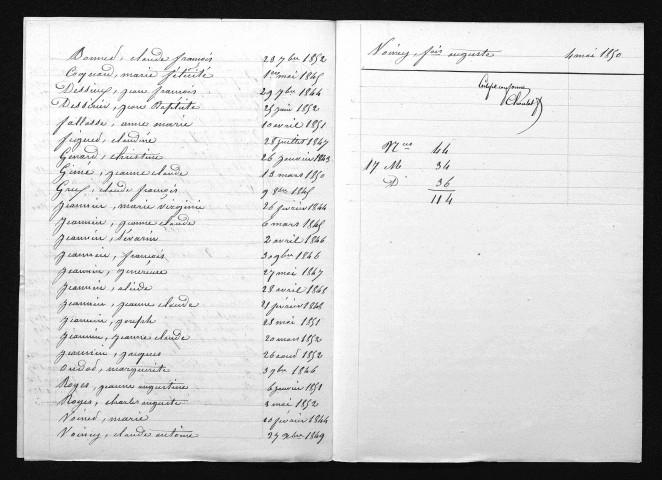 Bonned, claude françois 28 7bre 1852
Coquard, marie félicité 1er mai 1845
Dessirey, jean françois 29 9bre 1844
Dessirier, jean Baptiste 25 juin 1852
fallosse, anne marie 10 avril 1851
figurd, claudine 28 juillet 1847
Gérard, christine 26 janvier 1843
Girié, jeanne claude 12 mars 1850
Grey, claude françois 9 8bre 1845
jeannin, marie virginie 26 février 1844
jeannin, jeanne claude 6 mars 1845
jeannin, sévarin 2 avril 1846
jeannin, françois 30 9bre 1846
jeannin, généreuse 27 mai 1847
jeannin, alcide 28 avril 1848
jeannin, jeanne claude 21 février 1848
jeannin, joseph 28 mai 1851
jeannin, jeanne claude 20 mars 1852
jeannin, jacques 26 aoud 1852
oudod, marguerite 3 9bre 1846
Royes, jeanne augustine 6 janvier 1851
Royes, charles auguste 3 mai 1852
Voined, marie 20 février 1844
Voirey, claude antoine 27 xbre 1849
Voirey, fois auguste 4 mai 1850
Copie conforme
Nces 44
17 M 34
D 36
114